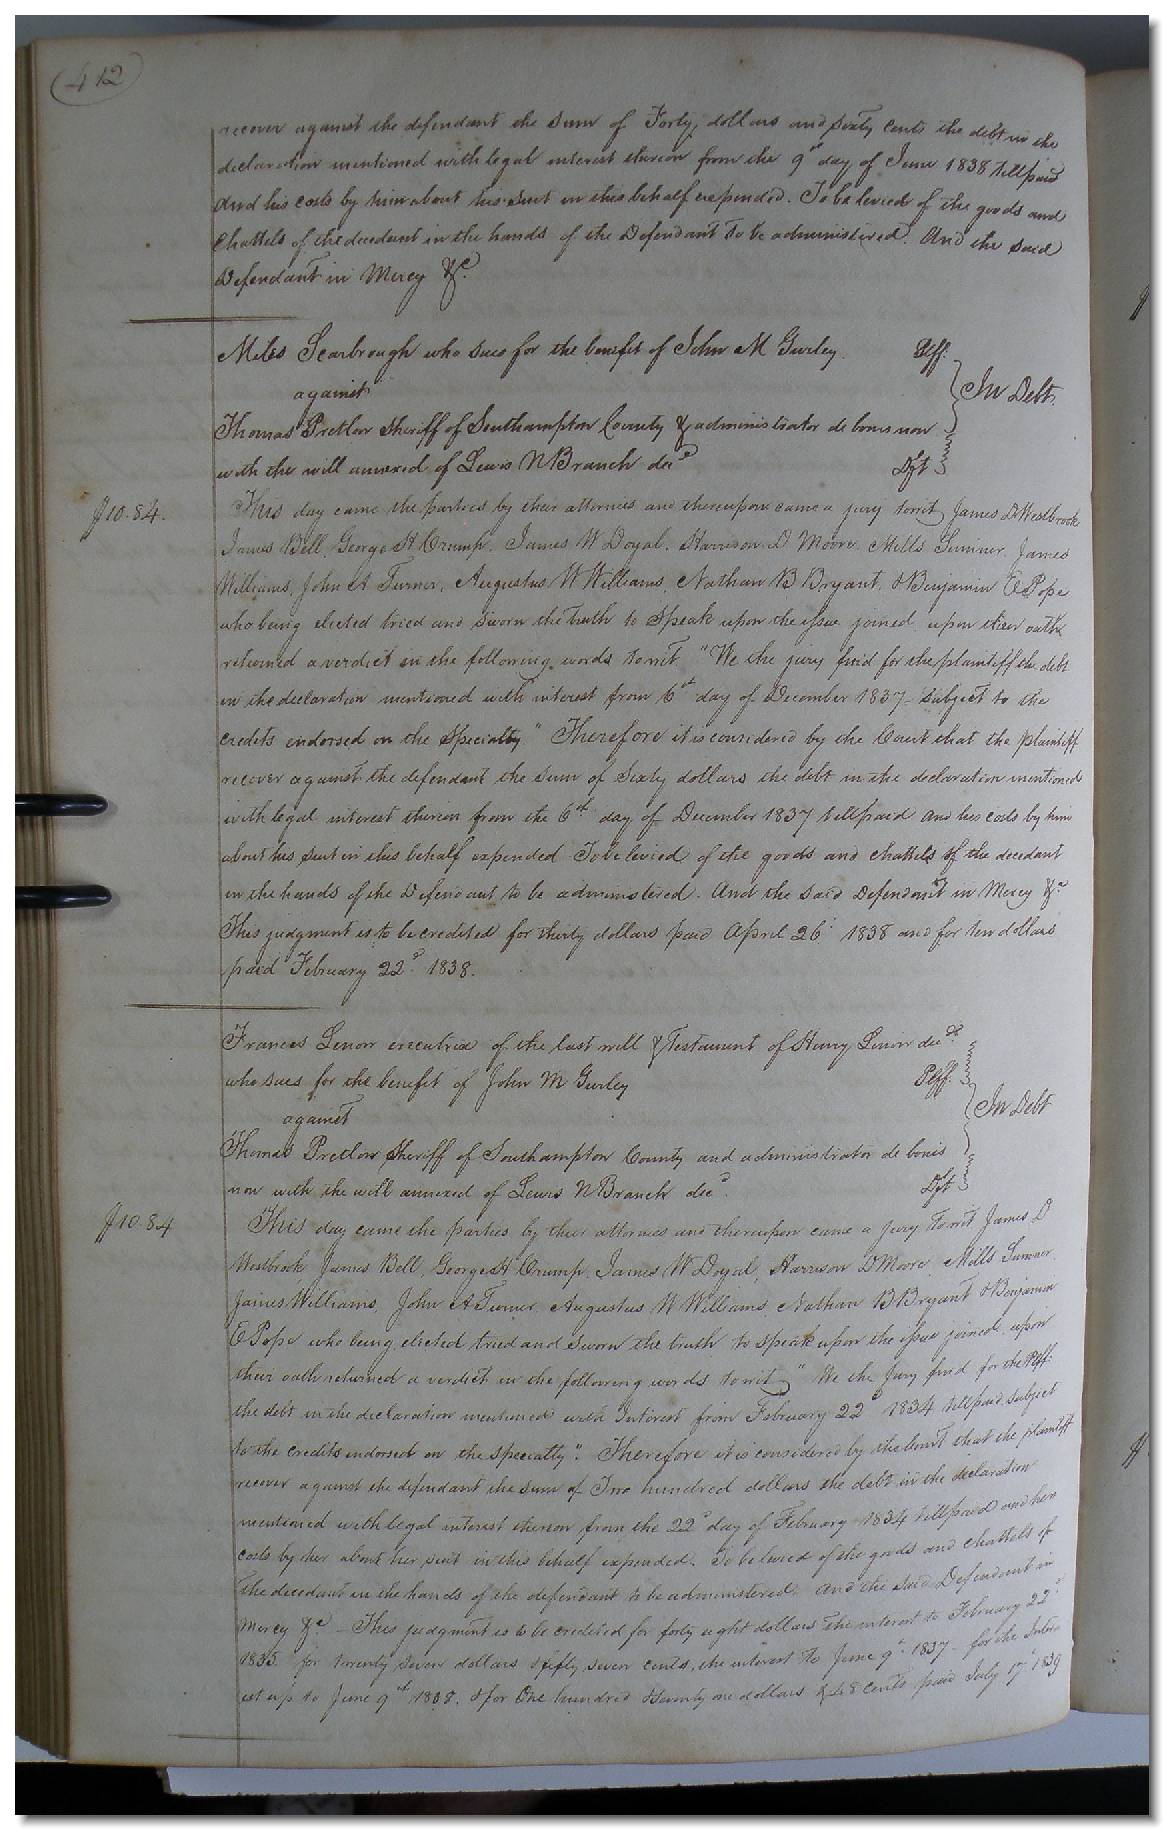 412
recover against the defendant the sum of Forty dollars and sixty cents the debt in the
declaration mentioned with legal interest thereon from the 9th day of June 1838 till paid
And his costs by him about his suit in this behalf expended. To be levied of the goods and
Chattels of the decedant in the hands of the Defendant to be administered. And the said
Defendant in Mercy &c.
Miles Scarbrough who sues for the benefit of John M Gurley Plff.
against
In Debt.
Thomas Pretlow Sheriff of Southampton County & administrator de bonis non
with the will annexed of Lewis N Branch decd Dft
This day came the parties by their attornies and thereupon came a jury towit James D Westbrook
$10.84.
James Bell, George H Crump, James W Doyal, Harrison D Moore, Mills Sumner, James
Williams, John A Turner, Augustus W Williams, Nathan B Bryant, & Benjamin E Pope
who being elected tried and sworn the truth to speak upon the issue joined upon their oaths
returned a verdict in the following words towit "We the jury find for the plaintiff the debt
in the declaration mentioned with interest from 6th day of December 1837 - subject to the
credits endorsed on the specialty" Therefore it is considered by the Court that the plaintiff
recover against the defendant the sum of Sixty dollars the debt in the declaration mentioned
with legal interest thereon from the 6th day of December 1837 till paid and his costs by him
about his suit in this behalf expended To be levied of the goods and chattels of the decedant
in the hands of the Defendant to be administered. And the said Defendant in Mercy &c
This judgment is to be credited for thirty dollars paid April 26 1838 and for ten dollars
paid February 22d 1838.
Frances Lenow executrix of the last will & Testament of Henry Lenow decd
who sues for the benefit of John M Gurley Plff.
against
In Debt
Thomas Pretlow Sheriff of Southampton County and administrator de bonis
non with the will annexed of Lewis N Branch decd. Dft
$10.84
This day came the parties by their attornies and thereupon came a jury towit James D
Westbrook, James Bell, George H Crump, James W Doyal, Harrison D Moore, Mills Sumner,
James Williams, John A Turner, Augustus W Williams, Nathan B Bryant & Benjamin
E Pope who being elected tried and sworn the truth to speak upon the issue joined upon
their oath returned a verdict in the following words towit "We the Jury find for the Plff.
the debt in the declaration mentioned with Interest from February 22d 1834 till paid subject
to the credits endorsed on the specialty". Therefore it is considered by the Court that the plaintiff
recover against the defendant the sum of Two hundred dollars the debt in the declaration
mentioned with legal interest thereon from the 22d day of February 1834 till paid and her
costs by her about her suit in this behalf expended. To be levied of the goods and chattels of
the decedant in the hands of the defendant to be administered. And the said Defendant in
Mercy &c - This judgment is to be credited for forty eight dollars the interest to February 22d
1835 for twenty seven dollars & fifty seven cents, the interest to June 9th 1837 - for the Inter-
est up to June 9th 1838. & for One hundred & twenty one dollars & 48 cents paid July 17 1839